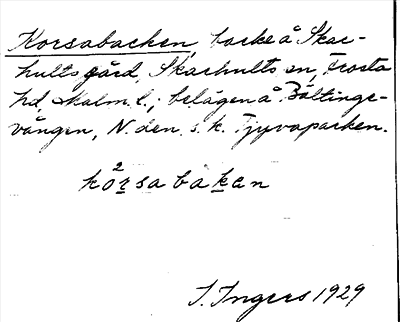 Korsabacken, backe å Skar-
hults gård, Skarhults sn, Frosta
hd, Malm. l.; belägen å Bältinge-
vången, N den s. k. Tjyvaparken.
kòrsabakan
I. Ingers 1929